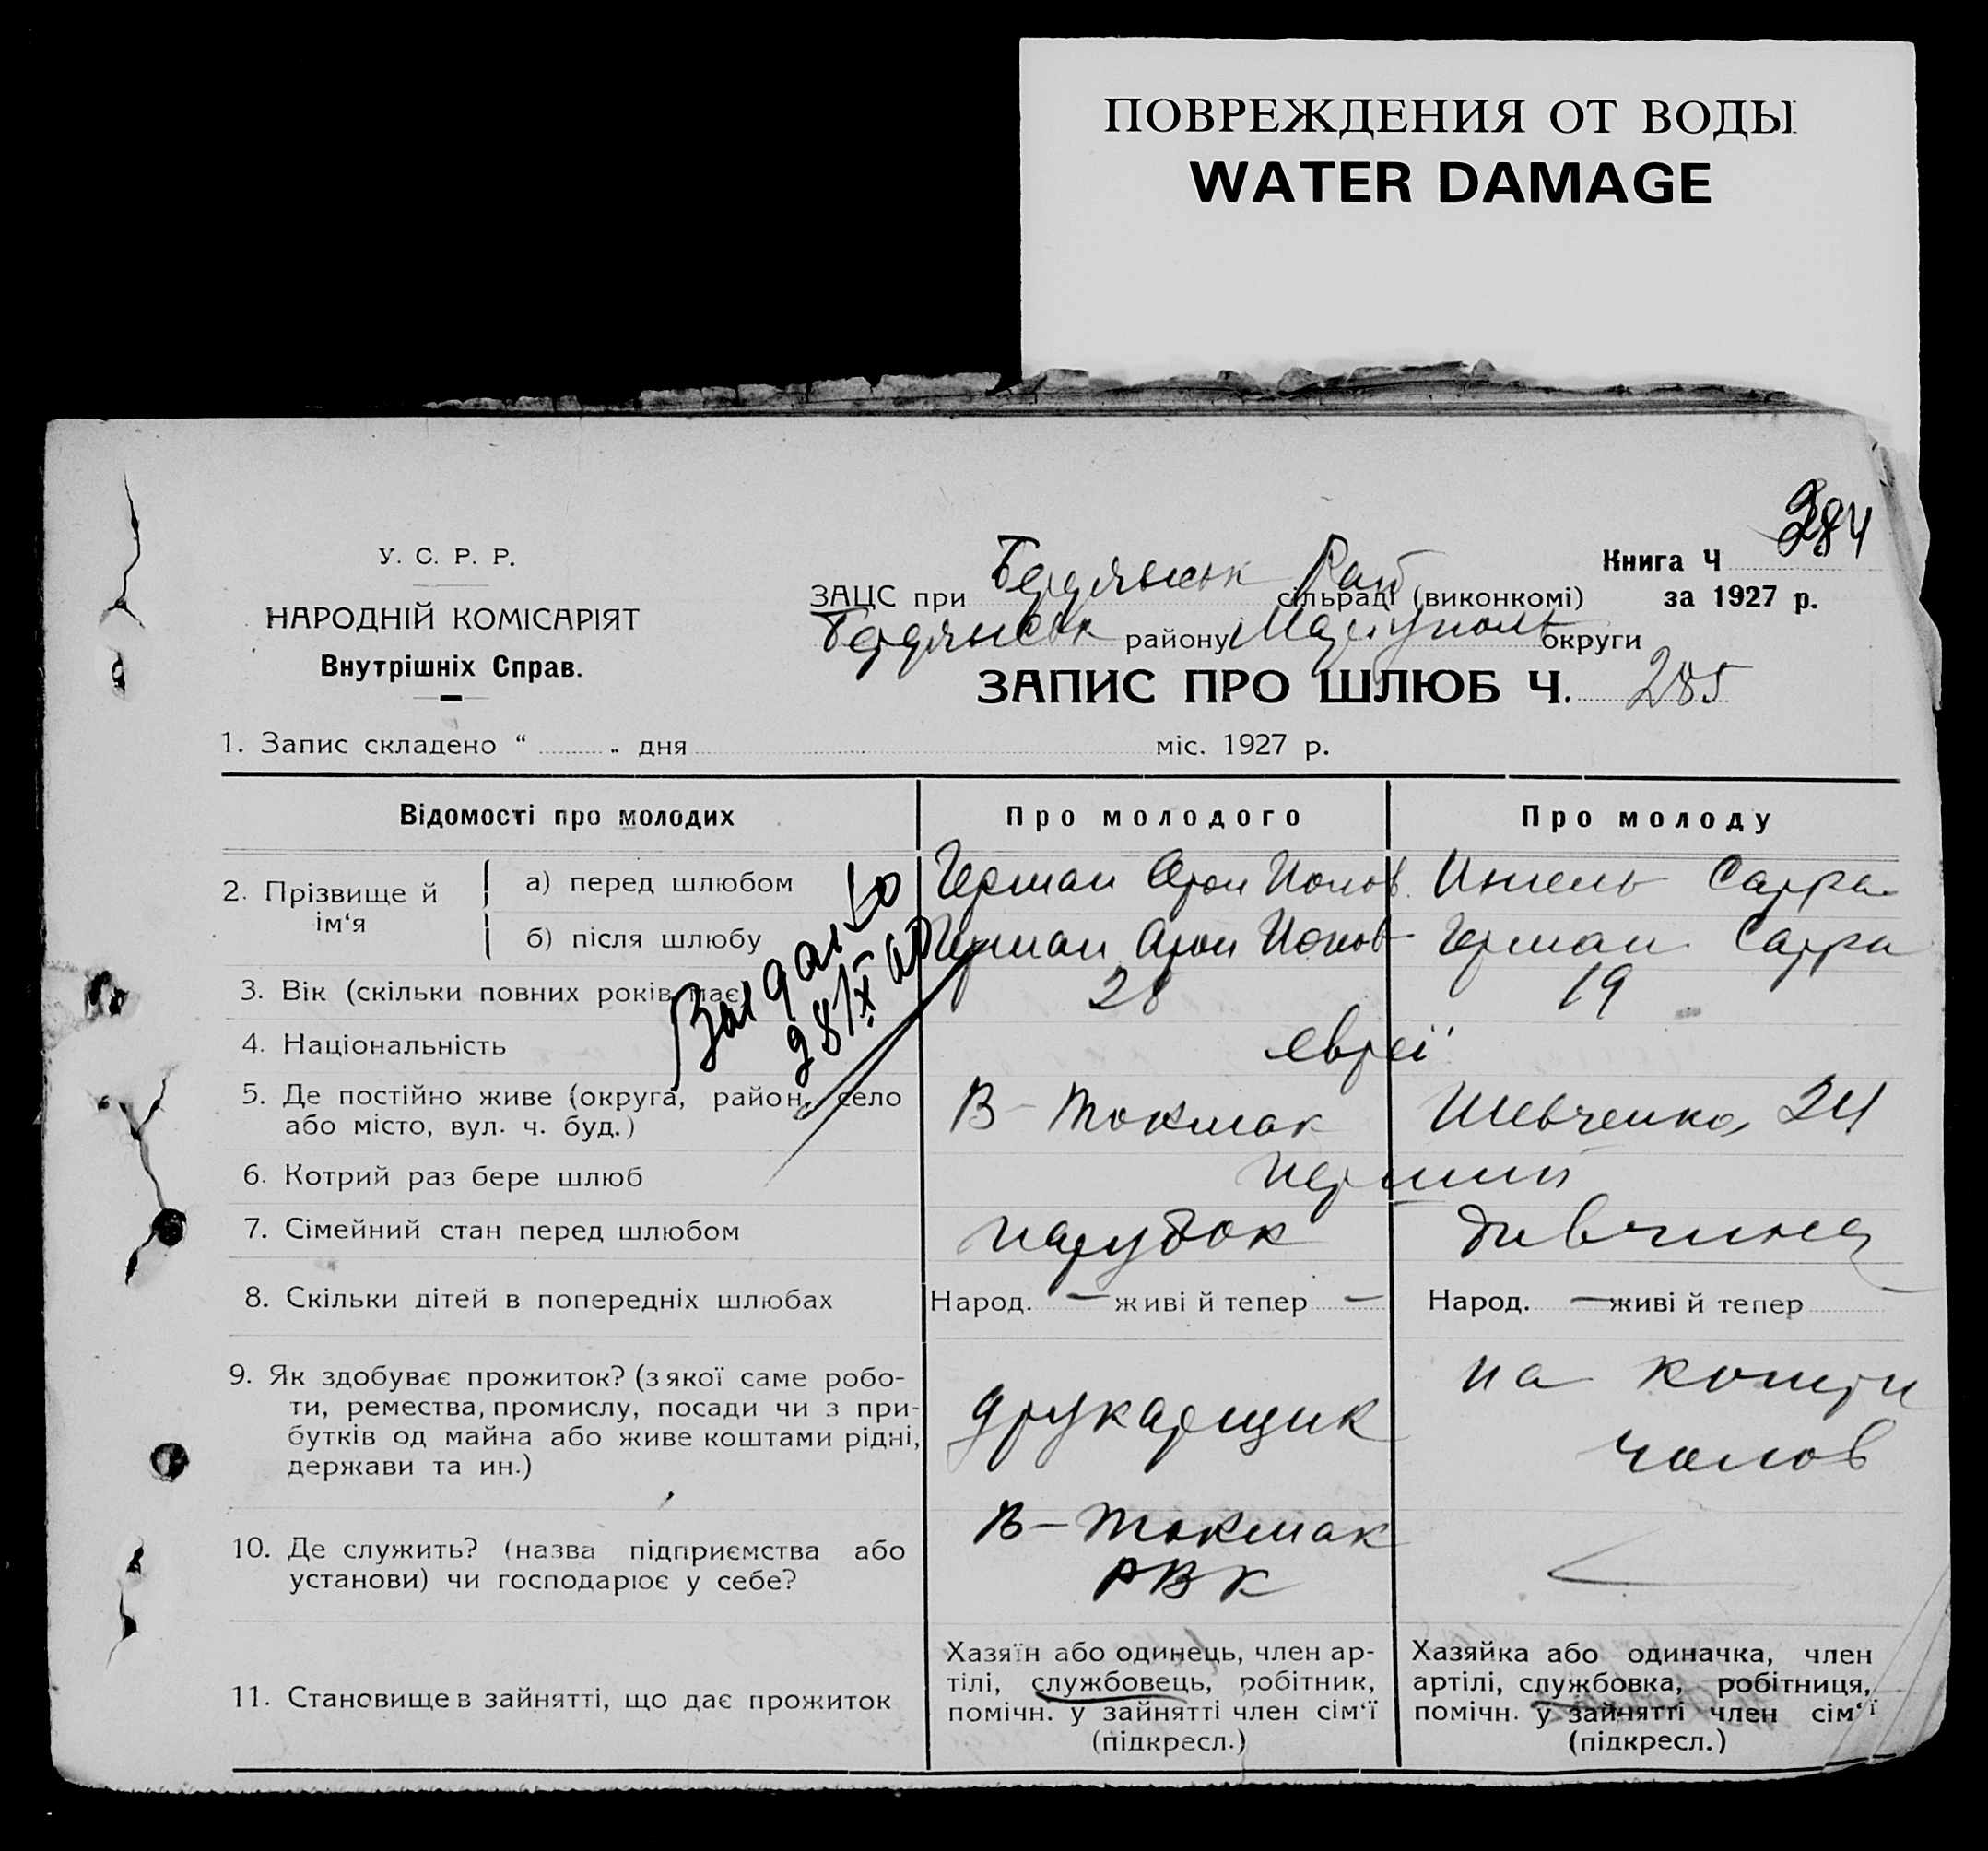 ПОВРЕЖДЕНИЯ ОТ ВОДЫ
WATER DAMAGE
284
У. С. Р. Р.
НАРОДНІЙ КОМІСАРІЯТ
Внутрішніх Справ.
Книга Ч
за 1927 р.
ЗАЦС при Бердянськ Рай сільраді (виконкомі)
Бердянськ району Маріуполь округи
ЗАПИС ПРО ШЛЮБ Ч. 285
1. Запис складено “ „ дня міс. 1927 р.
Відомості про молодих Про молодого Про молоду
2. Прізвище й ім‘я
а) перед шлюбом Герман Арон Ионов. Сарра
б) після шлюбу Герман Арон Ионов Герман Сарра
28/IX
3. Вік (скільки повних років має) 28 19
4. Національність євреї
5. Де постійно живе (округа, район, село
або місто, вул. ч. буд.)
В-Токмак Шевченка 24
6. Котрий раз бере шлюб перший
7. Сімейний стан перед шлюбом парубок дивчина
8. Скільки дітей в попередніх шлюбах Народ. — живі й тепер — Народ. — живі й тепер
9. Як здобуває прожиток? (з якої саме робо-
ти, ремества, промислу, посади чи з при-
бутків од майна або живе коштами рідні,
держави та ин.)
друкарщик
на кошти
чолов
10. Де служить? (назва підприємства або
установи) чи господарює у себе?
В-Токмак
РВК
11. Становище в зайнятті, що дає прожиток
Хазяїн або одинець, член ар-
тілі, службовець, робітник,
помічн. у зайнятті член сім‘ї
(підкресл.)
Хазяйка або одиначка, член
артілі, службовка, робітниця,
помічн. у зайнятті член сім‘ї
(підкресл.)